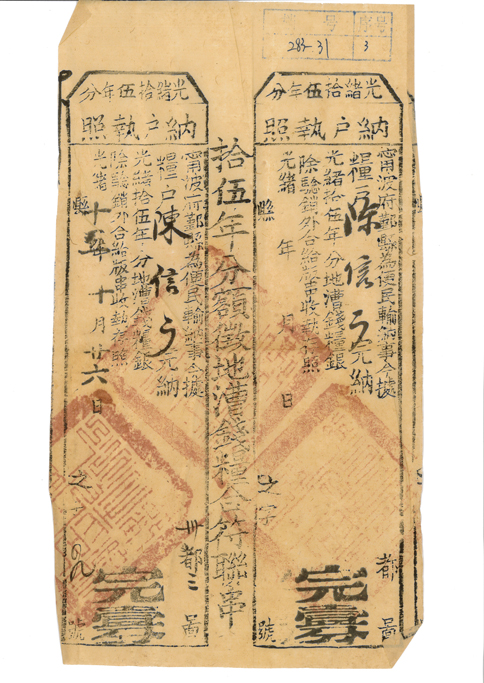 號 序号
283-31 3
光緒拾伍年分
納戶執照
寧波府鄞縣為便民輸納事今據
糧戶陳信 完納
光緒拾伍年分地漕錢糧銀
除驗銷外合給版串收執為照
光緒 年 月 日
縣
都 啚
之字 號
完 雲
拾伍年分額徵地漕錢糧合符聯串
光緒拾伍年分
納戶執照
寧波府鄞縣為便民輸納事今據
糧戶陳信 完納
光緒拾伍年分地漕錢糧銀
除驗銷外合給版串收執為照
光緒十五年十月廿六日
縣
卅都二啚
之 號
完